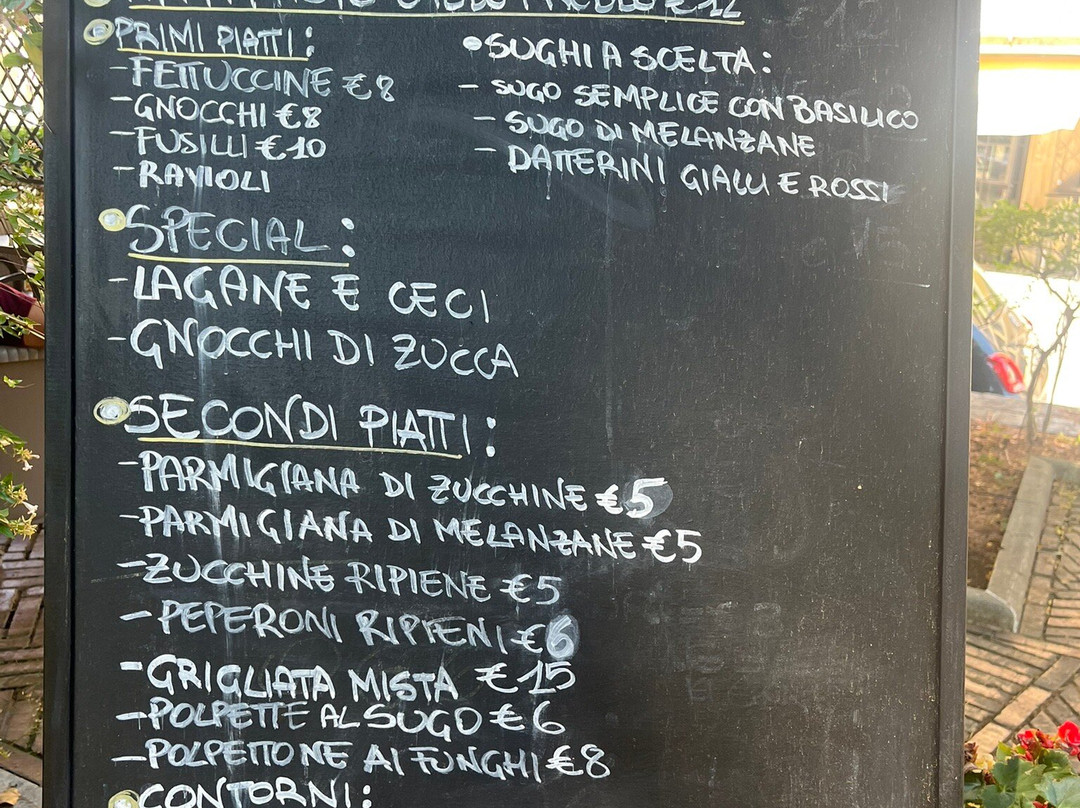 €12
PRIMI PIATTI:
-FETTUCCINE €8
-GNOCCHI €8
-FUSILLI €10
-RAVIOLI
SUGHI A SCELTA:
- SUGO SEMPLICE CON BASILICO
- SUGO DI MELANZANE
- DATTERINI GIALLI E ROSSI
SPECIAL:
-LAGANE E CECI
-GNOCCHI DI ZUCCA
SECONDI PIATTI:
-PARMIGIANA DI ZUCCHINE €5
-PARMIGIANA DI MELANZANE €5
-ZUCCHINE RIPIENE €5
-PEPERONI RIPIENI €6
-GRIGLIATA MISTA €15
-POLPETTE AL SUGO €6
-POLPETTONE AI FUNGHI €8
CONTORNI: